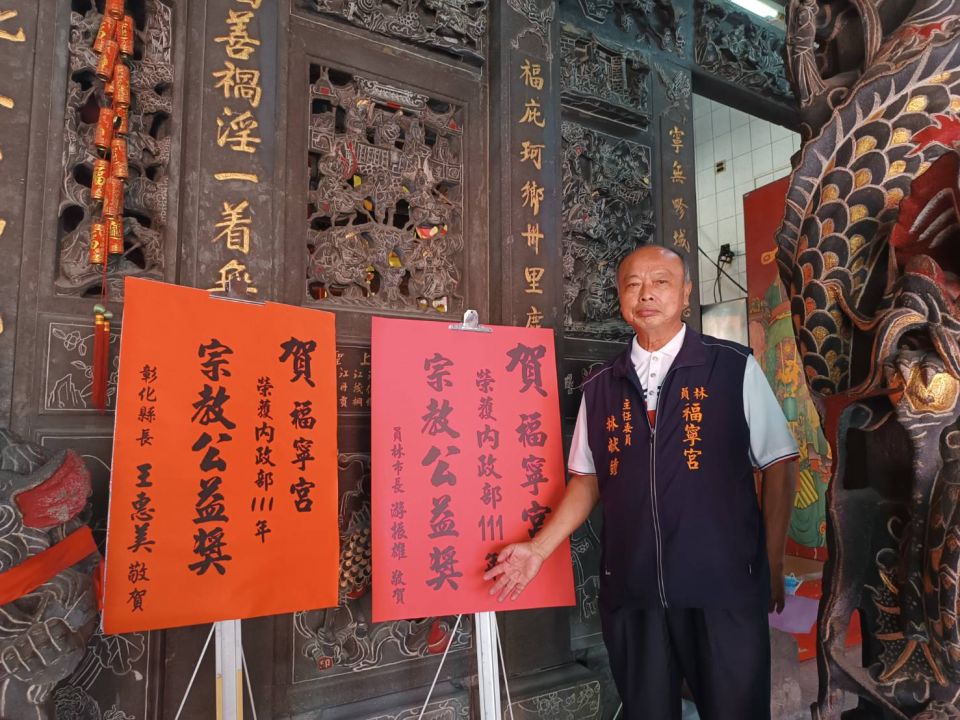 善禍淫一着無
福庇珂鄉卅里度
寧無畛域
賀 福寧宮
榮獲內政部111年
宗教公益獎
彰化縣長 王惠美 敬賀
賀 福寧宮
榮獲內政部111年
宗教公益獎
員林市長 游振雄 敬賀
員林
福寧宮
主任委員
林献